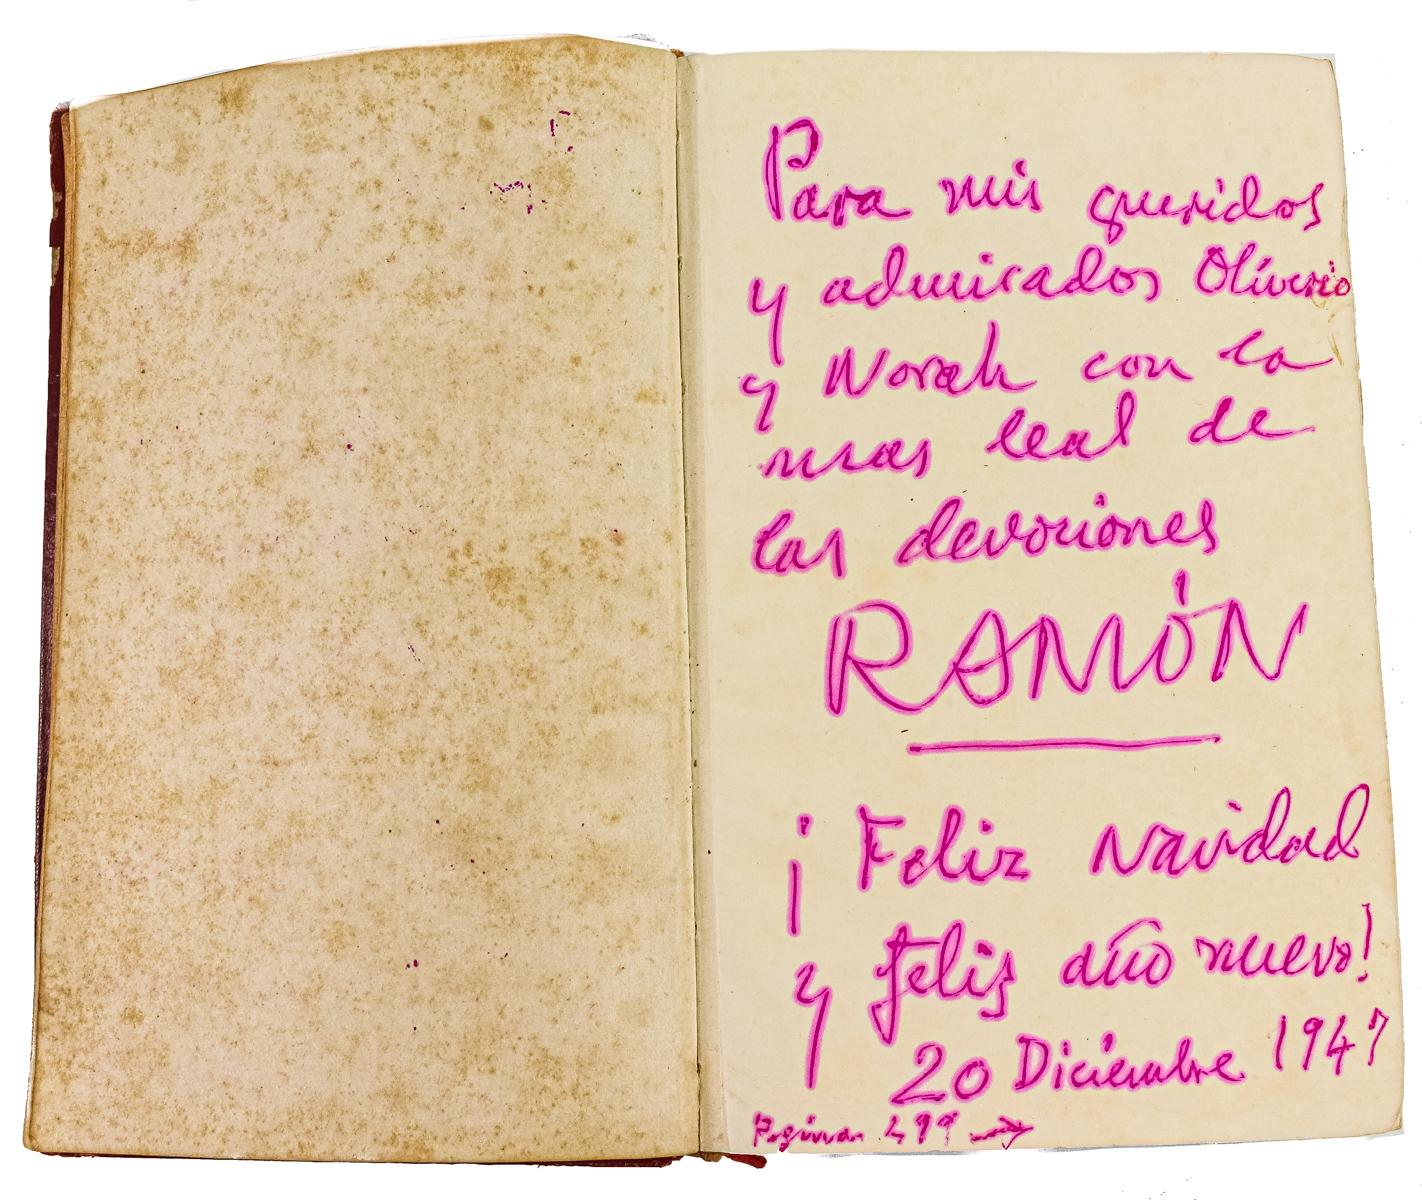 Para mis queridos
y admirados Oliverio
y Norah con la
mas leal de
las devociones
RAMÓN
¡Feliz Navidad
y feliz año nuevo!
20 Diciembre 1947
Pagina 499 →